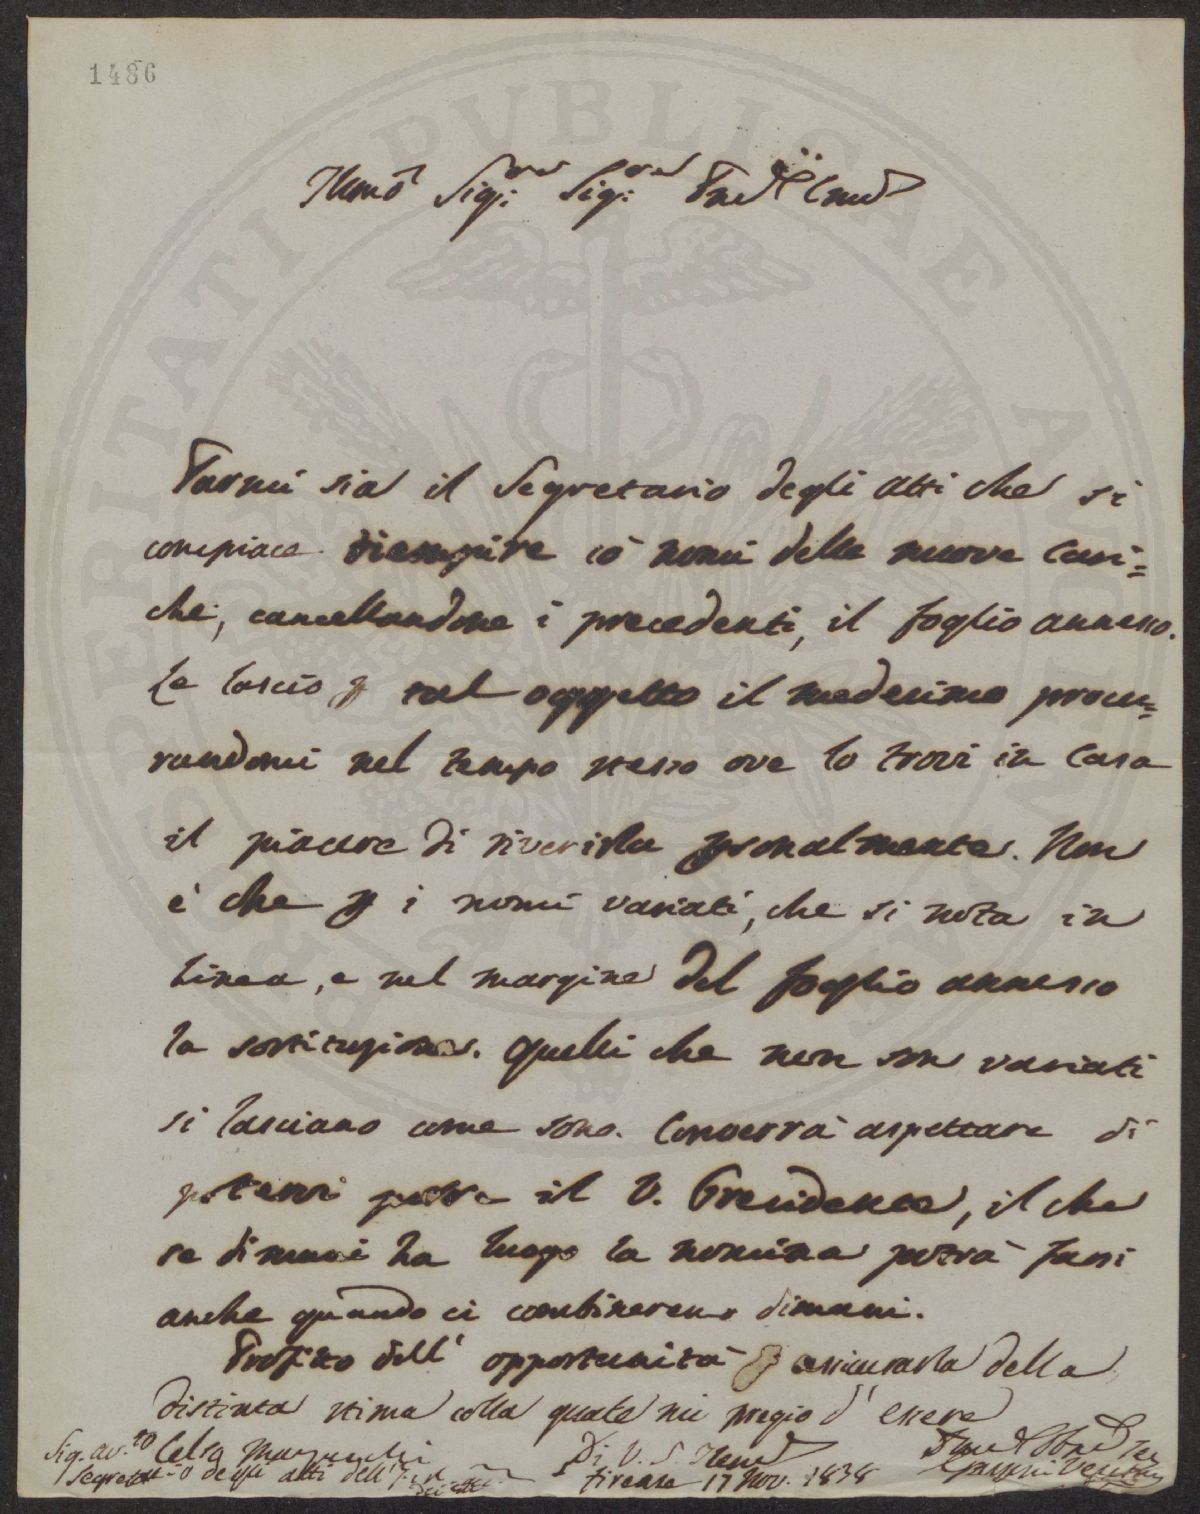 1486
Illmo Sig:re Sig:re
Parmi sia il Segretario degli atti che si
compiace riempire co nomi delle nuove Cari=
che, cancellandone i precedenti, il foglio annesso.
Le lascio p tal oggetto il medesimo procu=
randomi nel tempo stesso ove lo trovi in Casa
il piacere di riverirla psonalmente. Non
è che p i nomi variati, che si nota in
Linea, e nel margine del foglio annesso
la sostituzione. Quelli che non son variati
si lasciano come sono. Converrà aspettare di
potervi porre il V. Presidente, il che
se dimani ha luogo la nomina potrà farsi
anche quando ci combineremo dimani.
Profitto dell' opportunità p assicurarla della
distinta stima colla quale mi pregio d' essere
Di V. S. Illma
Firenze 17 Nov. 1838
Sig. av.to Celso Marzucchi
Segretario degli atti dell'
PROSPERITATI PUBLICAE AUGENDAE